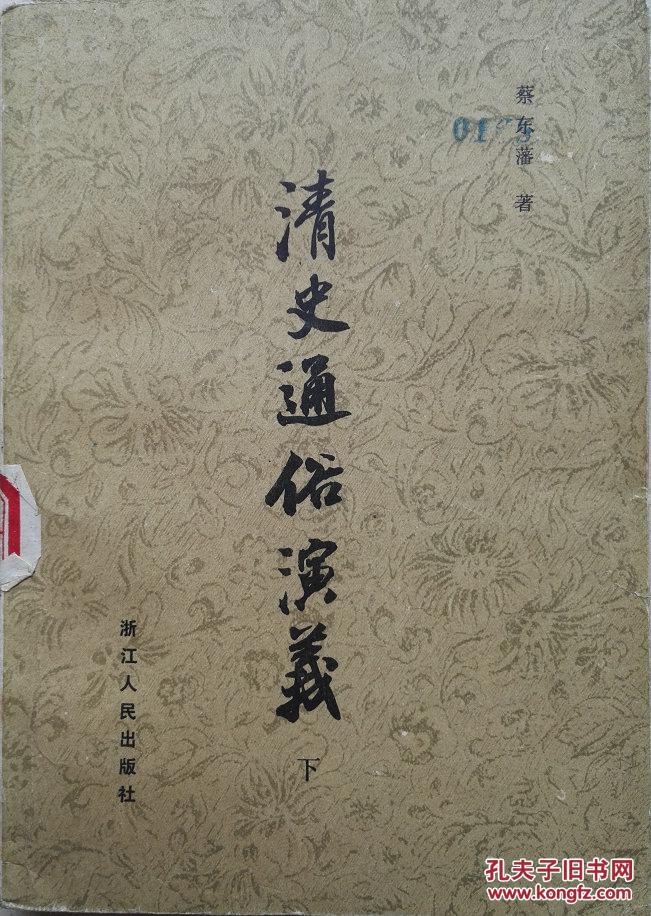 蔡东藩 著
清史通俗演義
下
浙江人民出版社
孔夫子旧书网
www.kongfz.com